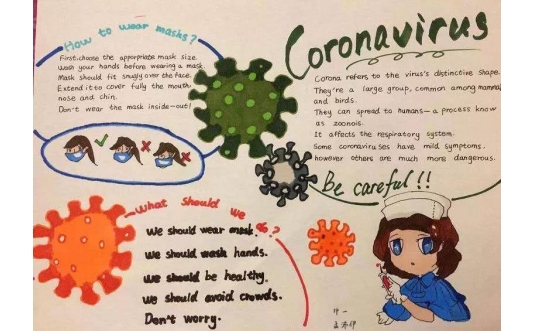 How to wear masks?
First, choose the apporpriate mask size.
Wash your hands before wearing a mask.
Mask should fit snugly over the face.
Extend it to cover fully the mouth
nose and chin.
Don't wear the mask inside-out!
Coronavirus
Corona refers to the virus's distinctive shape.
They're a large group, common among mammal
and birds.
They can spread to humans—a process know
as zoonois.
It affects the respiratory system.
Some coronaviruses have mild symptoms.
however others are much more dangerous.
Be careful!!
What should we do?
We should wear mask.
We should wash hands.
We should be healthy.
We should avoid crowds.
Don't worry.